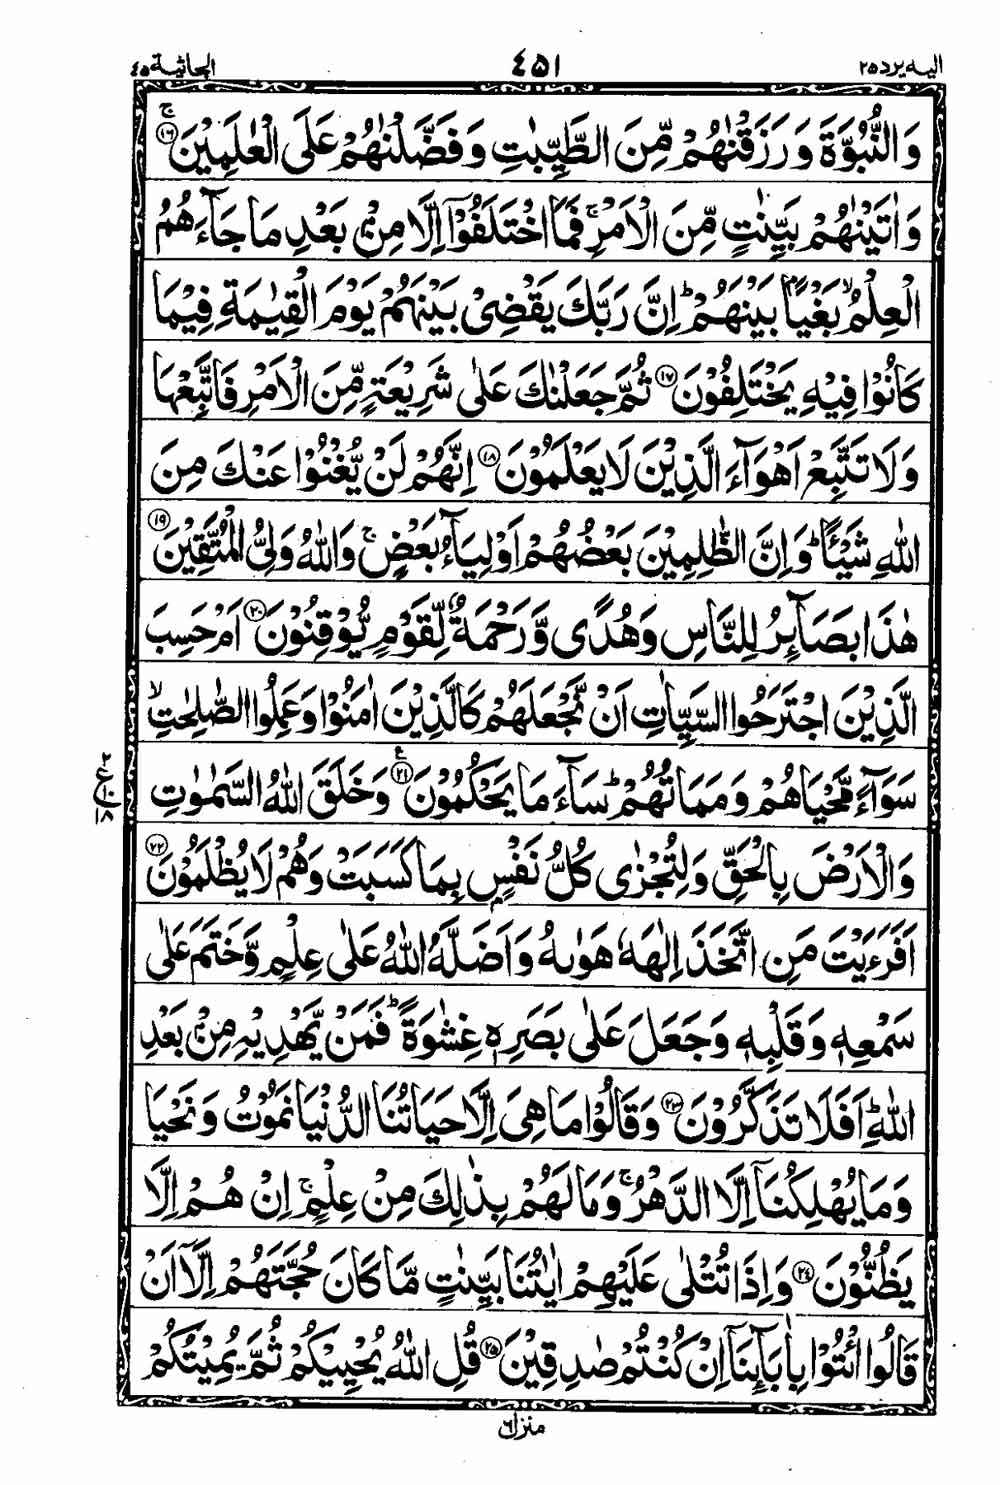 الیه یرد ۲۵
٤٥١
الجاثیة ٤٥
وَالنُّبُوَّةَ وَرَزَقْنٰهُمْ مِّنَ الطَّيِّبٰتِ وَفَضَّلْنٰهُمْ عَلَى الْعٰلَمِيْنَ ۚ‏﴿۱۶﴾
وَاٰتَيْنٰهُمْ بَيِّنٰتٍ مِّنَ الْاَمْرِ ۚ فَمَا اخْتَلَفُوْۤا اِلَّا مِنْۢ بَعْدِ مَا جَآءَهُمُ
الْعِلْمُ ۙ بَغْيًاۢ بَيْنَهُمْ ؕ اِنَّ رَبَّكَ يَقْضِىْ بَيْنَهُمْ يَوْمَ الْقِيٰمَةِ فِيْمَا
كَانُوْا فِيْهِ يَخْتَلِفُوْنَ ﴿۱۷﴾ ثُمَّ جَعَلْنٰكَ عَلٰى شَرِيْعَةٍ مِّنَ الْاَمْرِ فَاتَّبِعْهَا
وَلَا تَتَّبِعْ اَهْوَآءَ الَّذِيْنَ لَا يَعْلَمُوْنَ ﴿۱۸﴾ اِنَّهُمْ لَنْ يُّغْنُوْا عَنْكَ مِنَ
اللّٰهِ شَيْـًٔا ؕ وَاِنَّ الظّٰلِمِيْنَ بَعْضُهُمْ اَوْلِيَآءُ بَعْضٍ ۚ وَاللّٰهُ وَلِىُّ الْمُتَّقِيْنَ ﴿۱۹﴾
هٰذَا بَصَآئِرُ لِلنَّاسِ وَهُدًى وَّرَحْمَةٌ لِّقَوْمٍ يُّوْقِنُوْنَ ﴿۲۰﴾ اَمْ حَسِبَ
الَّذِيْنَ اجْتَرَحُوا السَّيِّاٰتِ اَنْ نَّجْعَلَهُمْ كَالَّذِيْنَ اٰمَنُوْا وَعَمِلُوا الصّٰلِحٰتِ ۙ
سَوَآءً مَّحْيَاهُمْ وَمَمَاتُهُمْ ؕ سَآءَ مَا يَحْكُمُوْنَ ﴿۲۱﴾ ع وَخَلَقَ اللّٰهُ السَّمٰوٰتِ
۲ ع ۱۰ ۱۸
وَالْاَرْضَ بِالْحَقِّ وَلِتُجْزٰى كُلُّ نَفْسٍۭ بِمَا كَسَبَتْ وَهُمْ لَا يُظْلَمُوْنَ ﴿۲۲﴾
اَفَرَءَيْتَ مَنِ اتَّخَذَ اِلٰهَهٗ هَوٰىهُ وَاَضَلَّهُ اللّٰهُ عَلٰى عِلْمٍ وَّخَتَمَ عَلٰى
سَمْعِهٖ وَقَلْبِهٖ وَجَعَلَ عَلٰى بَصَرِهٖ غِشٰوَةً ؕ فَمَنْ يَّهْدِيْهِ مِنْۢ بَعْدِ
اللّٰهِ ؕ اَفَلَا تَذَكَّرُوْنَ ﴿۲۳﴾ وَقَالُوْا مَا هِىَ اِلَّا حَيَاتُنَا الدُّنْيَا نَمُوْتُ وَنَحْيَا
وَمَا يُهْلِكُنَاۤ اِلَّا الدَّهْرُ ۚ وَمَا لَهُمْ بِذٰلِكَ مِنْ عِلْمٍ ۚ اِنْ هُمْ اِلَّا
يَظُنُّوْنَ ﴿۲۴﴾ وَاِذَا تُتْلٰى عَلَيْهِمْ اٰيٰتُنَا بَيِّنٰتٍ مَّا كَانَ حُجَّتَهُمْ اِلَّاۤ اَنْ
قَالُوا ائْتُوْا بِاٰبَآئِنَاۤ اِنْ كُنْتُمْ صٰدِقِيْنَ ﴿۲۵﴾ قُلِ اللّٰهُ يُحْيِيْكُمْ ثُمَّ يُمِيْتُكُمْ
منزل ٦